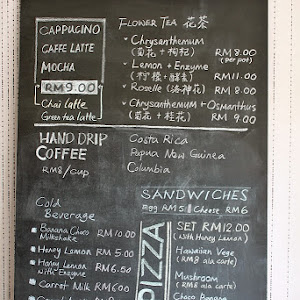 CAPPUCINO
CAFFE LATTE
MOCHA
RM 9.00
Chai latte
Green tea latte
FLOWER TEA 花茶
Chrysanthemum
(菊花 + 枸杞) RM 9.00
(per pot)
Lemon + Enzyme
(柠檬 + 酵素) RM 11.00
Roselle (洛神花) RM 8.00
Chrysanthemum + Osmanthus
(菊花 + 桂花) RM 9.00
HAND DRIP
COFFEE
RM8/CUP
Costa Rica
Papua New Guinea
Columbia
SANDWICHES
Egg RM 5 | Cheese RM 6
Cold
Beverage
Banana Choco
Milkshake RM 10.00
Honey Lemon RM 5.00
Honey Lemon
with Enzyme RM 6.50
Carrot Milk RM 6.00
PIZZA
SET RM 12.00
(with Honey Lemon)
Hawaiian Vege
(RM 8 ala carte)
Mushroom
(RM 8 ala carte)
Choco Banana